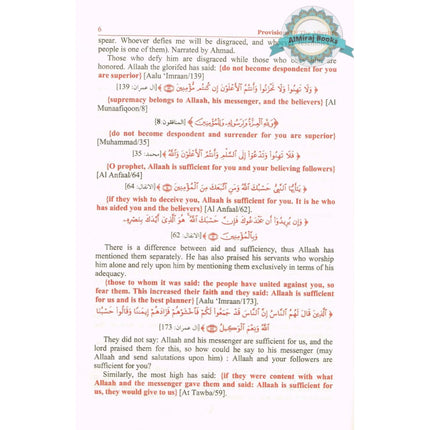 6
Provisions
AlMiraj Books
spear. Whoever defies me will be disgraced, and who
people is one of them). Narrated by Ahmad.
Those who defy him are disgraced while those who
honored. Allaah the glorified has said: {do not become despondent for you
are superior} [Aalu 'Imraan/139]
﴿ وَلَا تَهِنُوا وَلَا تَحْزَنُوا وَأَنتُمُ الْأَعْلَوْنَ إِن كُنتُم مُّؤْمِنِينَ ﴾ [آل عمران: 139]
{supremacy belongs to Allaah, his messenger, and the believers} [Al
Munaafiqoon/8]
﴿ وَلِلَّهِ الْعِزَّةُ وَلِرَسُولِهِ وَلِلْمُؤْمِنِينَ ﴾ [المنافقون: 8]
{do not become despondent and surrender for you are superior}
[Muhammad/35]
﴿ فَلَا تَهِنُوا وَتَدْعُوا إِلَى السَّلْمِ وَأَنتُمُ الْأَعْلَوْنَ وَاللَّهُ ﴾ [محمد: 35]
{O prophet, Allaah is sufficient for you and your believing followers}
[Al Anfaal/64]
﴿ يَا أَيُّهَا النَّبِيُّ حَسْبُكَ اللَّهُ وَمَنِ اتَّبَعَكَ مِنَ الْمُؤْمِنِينَ ﴾ [الأنفال: 64]
{if they wish to deceive you, Allaah is sufficient for you. It is he who
has aided you and the believers} [Al Anfaal/62].
﴿ وَإِن يُرِيدُوا أَن يَخْدَعُوكَ فَإِنَّ حَسْبَكَ اللَّهُ هُوَ الَّذِي أَيَّدَكَ بِنَصْرِهِ
وَبِالْمُؤْمِنِينَ ﴾ [الأنفال: 62]
There is a difference between aid and sufficiency, thus Allaah has
mentioned them separately. He has also praised his servants who worship
him alone and rely upon him by mentioning them exclusively in terms of his
adequacy.
{those to whom it was said: the people have united against you, so
fear them. This increased their faith and they said: Allaah is sufficient
for us and is the best planner} [Aalu 'Imraan/173].
﴿ الَّذِينَ قَالَ لَهُمُ النَّاسُ إِنَّ النَّاسَ قَدْ جَمَعُوا لَكُمْ فَاخْشَوْهُمْ فَزَادَهُمْ إِيمَانًا وَقَالُوا حَسْبُنَا
اللَّهُ وَنِعْمَ الْوَكِيلُ ﴾ [آل عمران: 173]
They did not say: Allaah and his messenger are sufficient for us, and the
lord praised them for this, so how could he say to his messenger (may
Allaah and send salutations upon him) : Allaah and your followers are
sufficient for you?
Similarly, the most high has said: {if they were content with what
Allaah and the messenger gave them and said: Allaah is sufficient for
us, they would give to us} [At Tawba/59].